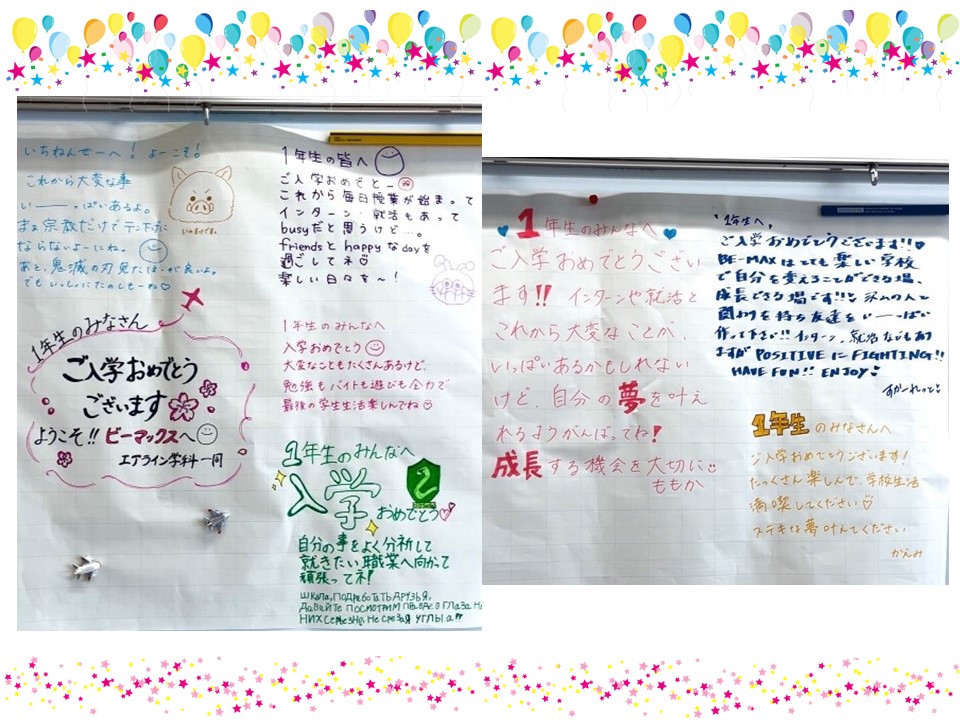 いちねんせーへ!よーこそ!
これから大変な事
い――っぱいあるよ。
まぁ宗教だけで
ならないよーにね。
あと、鬼滅の刃見たほーが良いよ。
でもいっしょにたのしもーね♡
1年生の皆へ
ご入学おめでとー
これから毎日授業が始まって
インターン・就活もあって
busyだと思うけど…。
friendsとhappyなdayを
過ごしてネ
楽しい日々を〜!
1年生のみなさん
ご入学おめでとう
ございます
ようこそ!!ビーマックスへ
エアライン学科一同
1年生のみんなへ
入学おめでとう
大変なこともたくさんあるけど、
勉強もバイトも遊びも全力で
最後の学生生活楽しんでね
1年生のみんなへ
入学おめでとう
2
自分の事をよく分析して
就きたい職業へ向かって
頑張ってネ!
ШКОЛА, ПОДРАБОТАТЬ ДРУЗЬЯ,
ДАВАЙТЕ ПОСМОТРИМ ПРАВДЕ В ГЛАЗА НА
НИХ СЕРЬЕЗНО, НЕ СРЕЗАЯ УГЛЫ а!!
1年生のみんなへ
ご入学おめでとうござい
ます!!インターンや就活と
これから大変なことが、
いっぱいあるかもしれない
けど、自分の夢を叶え
れるようがんばってね!
成長する機会を大切に
ももか
1年生へ、
ご入学おめでとうございます!!
BE-MAXはとても楽しい学校
で自分を変えることができる場、
成長できる場です!!沢山の人と
関わりを持ち友達をい――っぱい
作って下さい!!インターン、就活などもあり
ますがPOSITIVEにFIGHTING!!
HAVE FUN!! ENJOY
すかーれっと
1年生のみなさんへ
ご入学おめでとうございます!
たっくさん楽しんで、学校生活
満喫してください♡
ステキな夢叶えてください
かえみ